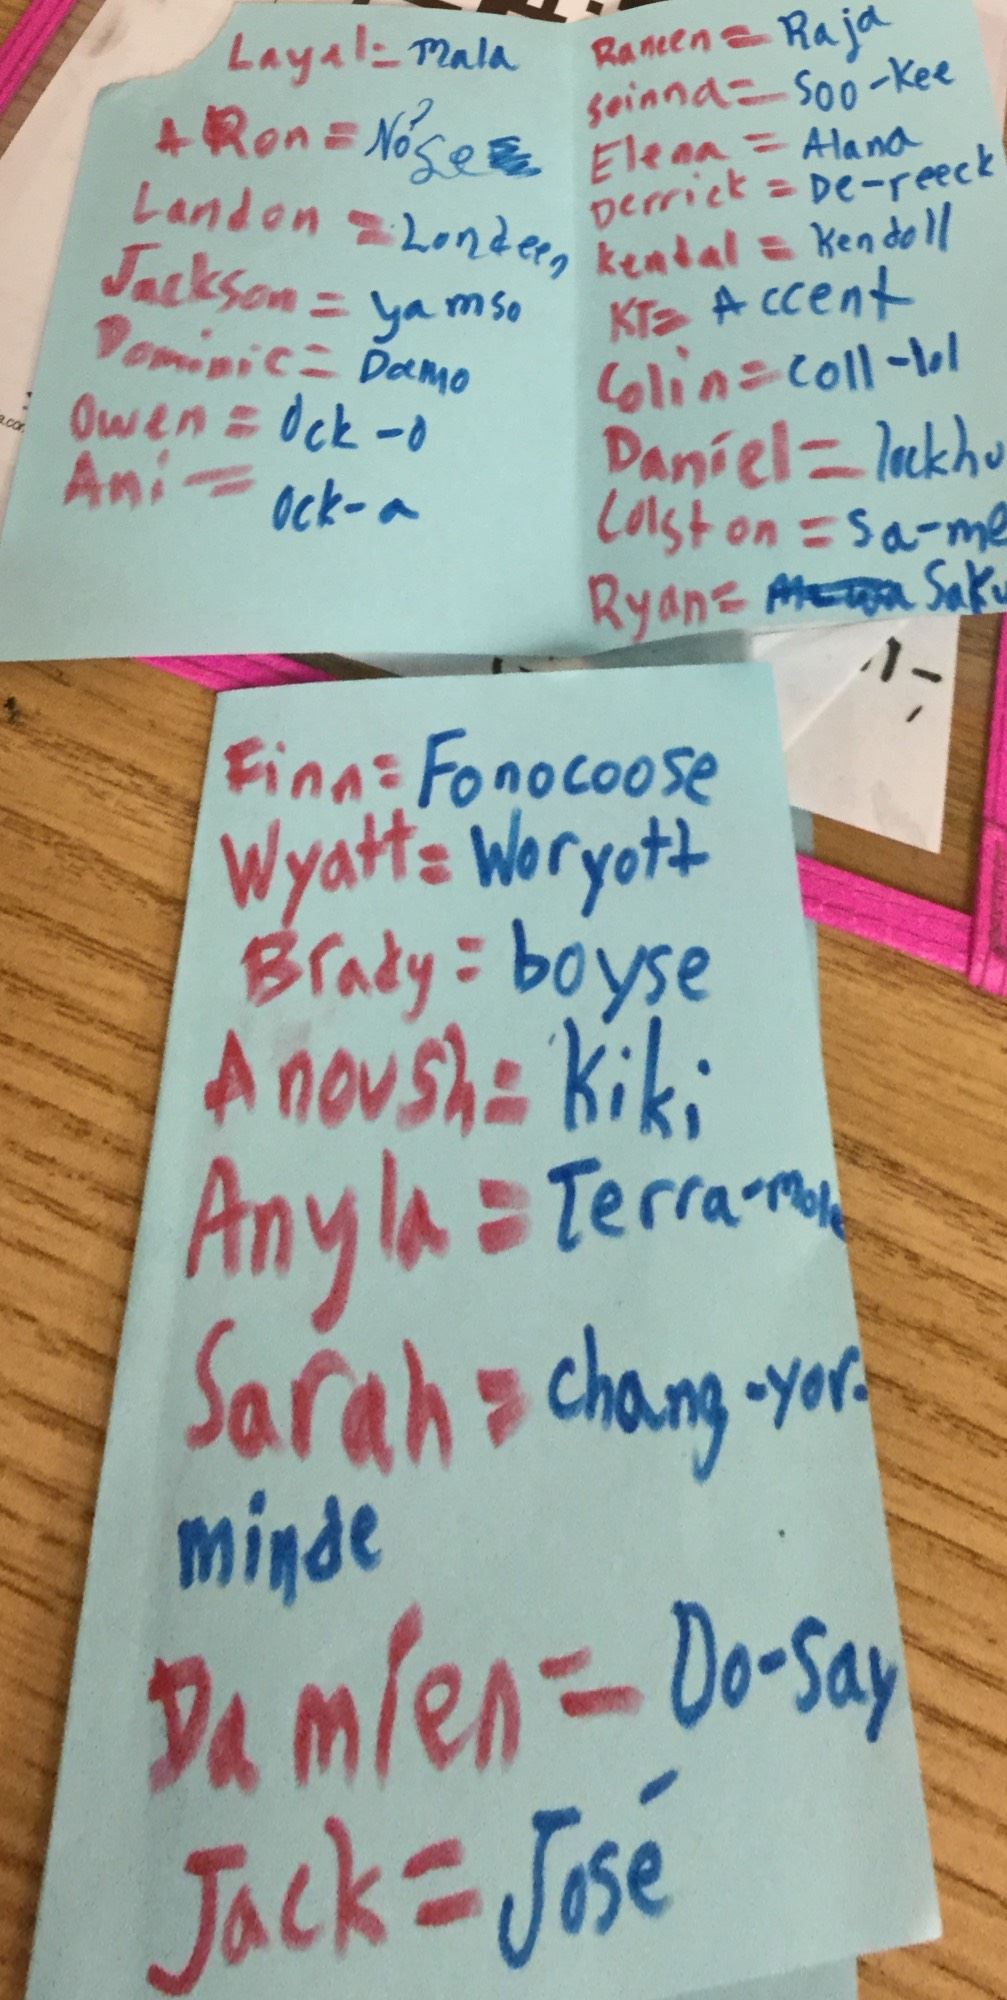 Layal = Mala
ARon = No? Se
Landon = Londeen
Jackson = yamso
Dominic = Damo
Owen = Ock-o
Ani = Ock-a
Rameen = Raja
seinna = Soo-Kee
Elena = Alana
Derrick = De-reeck
kendal = Kendoll
KT= Accent
Colin = Coll-lol
Daniel = lockhu
Colston = Sa-me
Ryan = Saku
Finn = Fonocoose
Wyatt = Woryott
Brady = boyse
Anoush = Kiki
Anyla = Terra-mole
Sarah = Chang-yor-
minde
Damien = Do-Say
Jack = José